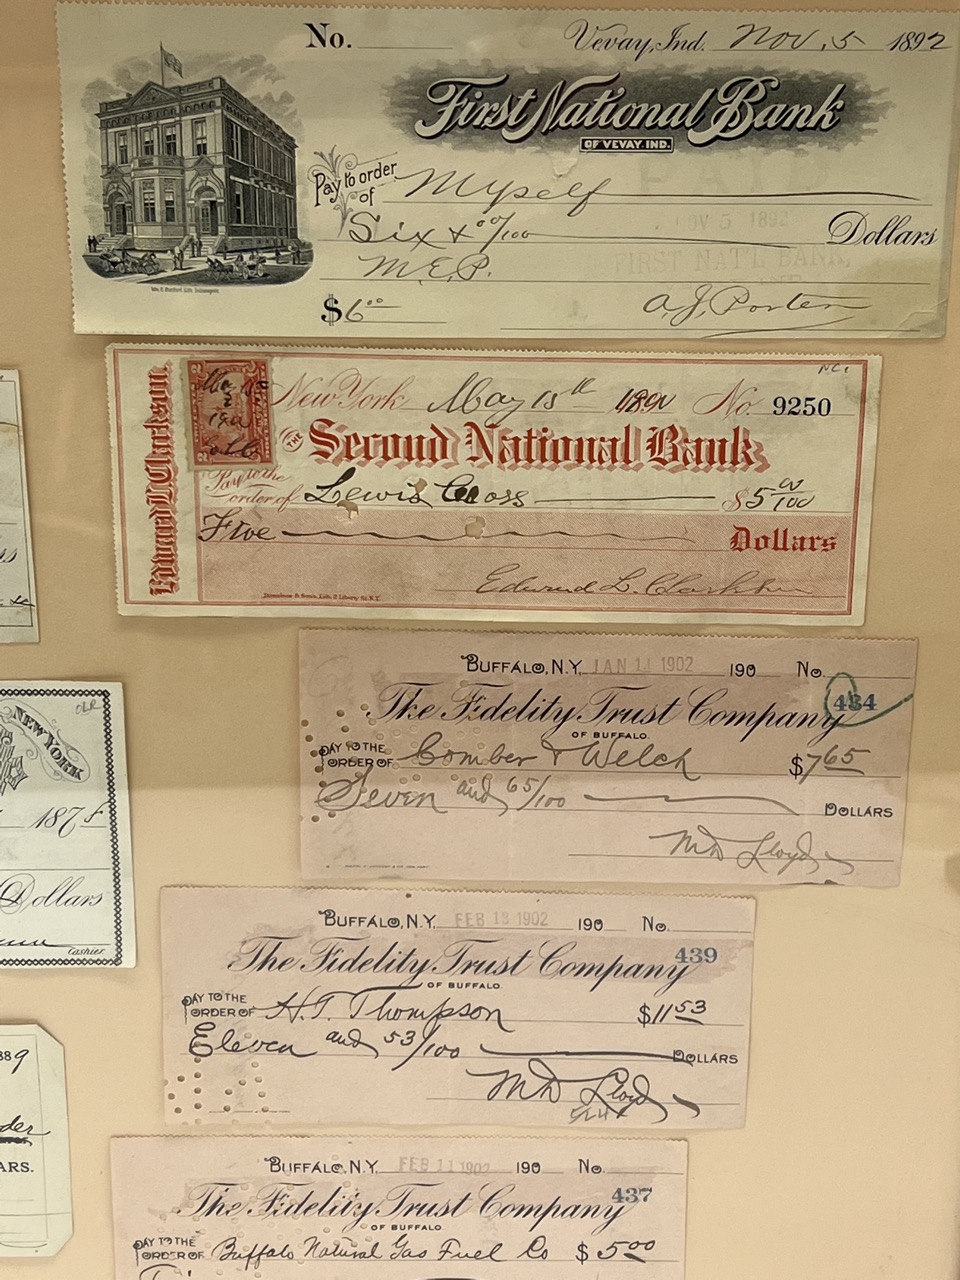 No.
Vevay, Ind. Nov. 5 1892
First National Bank
OF VEVAY, IND.
Pay to order of Myself
NOV 5 1892
Six & 00/100 Dollars
FIRST NAT'L BANK,
M.E.P.
$6.00
A.J. Porter
Edward L. Clarkson.
New York May 15th No. 9250
THE Second National Bank
Pay to the order of Lewis Cross $5 00/100
Five Dollars
Edward L. Clarkson
BUFFALO, N.Y. JAN 11 1902 190 No.
434
The Fidelity Trust Company
OF BUFFALO.
PAY TO THE ORDER OF Comber & Welch $7.65
Seven and 65/100 DOLLARS
MD Lloyd
NEW YORK
187
Dollars
Cashier.
BUFFALO, N.Y. FEB 13 1902 190 No.
439
The Fidelity Trust Company
OF BUFFALO.
PAY TO THE ORDER OF H.T. Thompson $11.53
Eleven and 53/100 DOLLARS
MD Lloyd
889
der
ARS.
BUFFALO, N.Y. FEB 11 1902 190 No.
437
The Fidelity Trust Company
OF BUFFALO.
PAY TO THE ORDER OF Buffalo Natural Gas Fuel Co $5.00